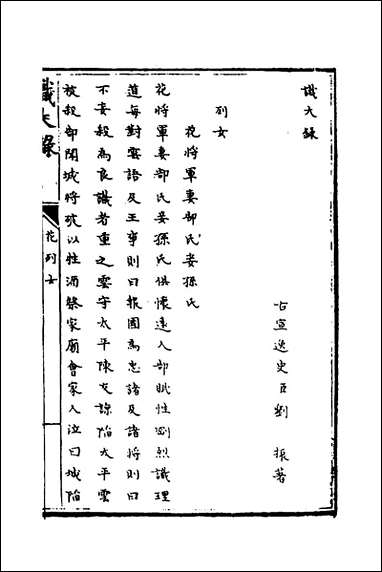 識大錄
古宣逸史臣劉　振著
列女
花將軍妻郜氏妾孫氏
花將軍妻郜氏妾孫氏俱懷遠人郜賦性剛烈識理
道每對雲語及王事則曰報國為忠語及諸將則曰
不妄殺為良識者重之雲守太平陳友諒陷太平雲
被殺郜聞城將破以牲酒祭家廟會家人泣曰城陷
識大錄
花列女